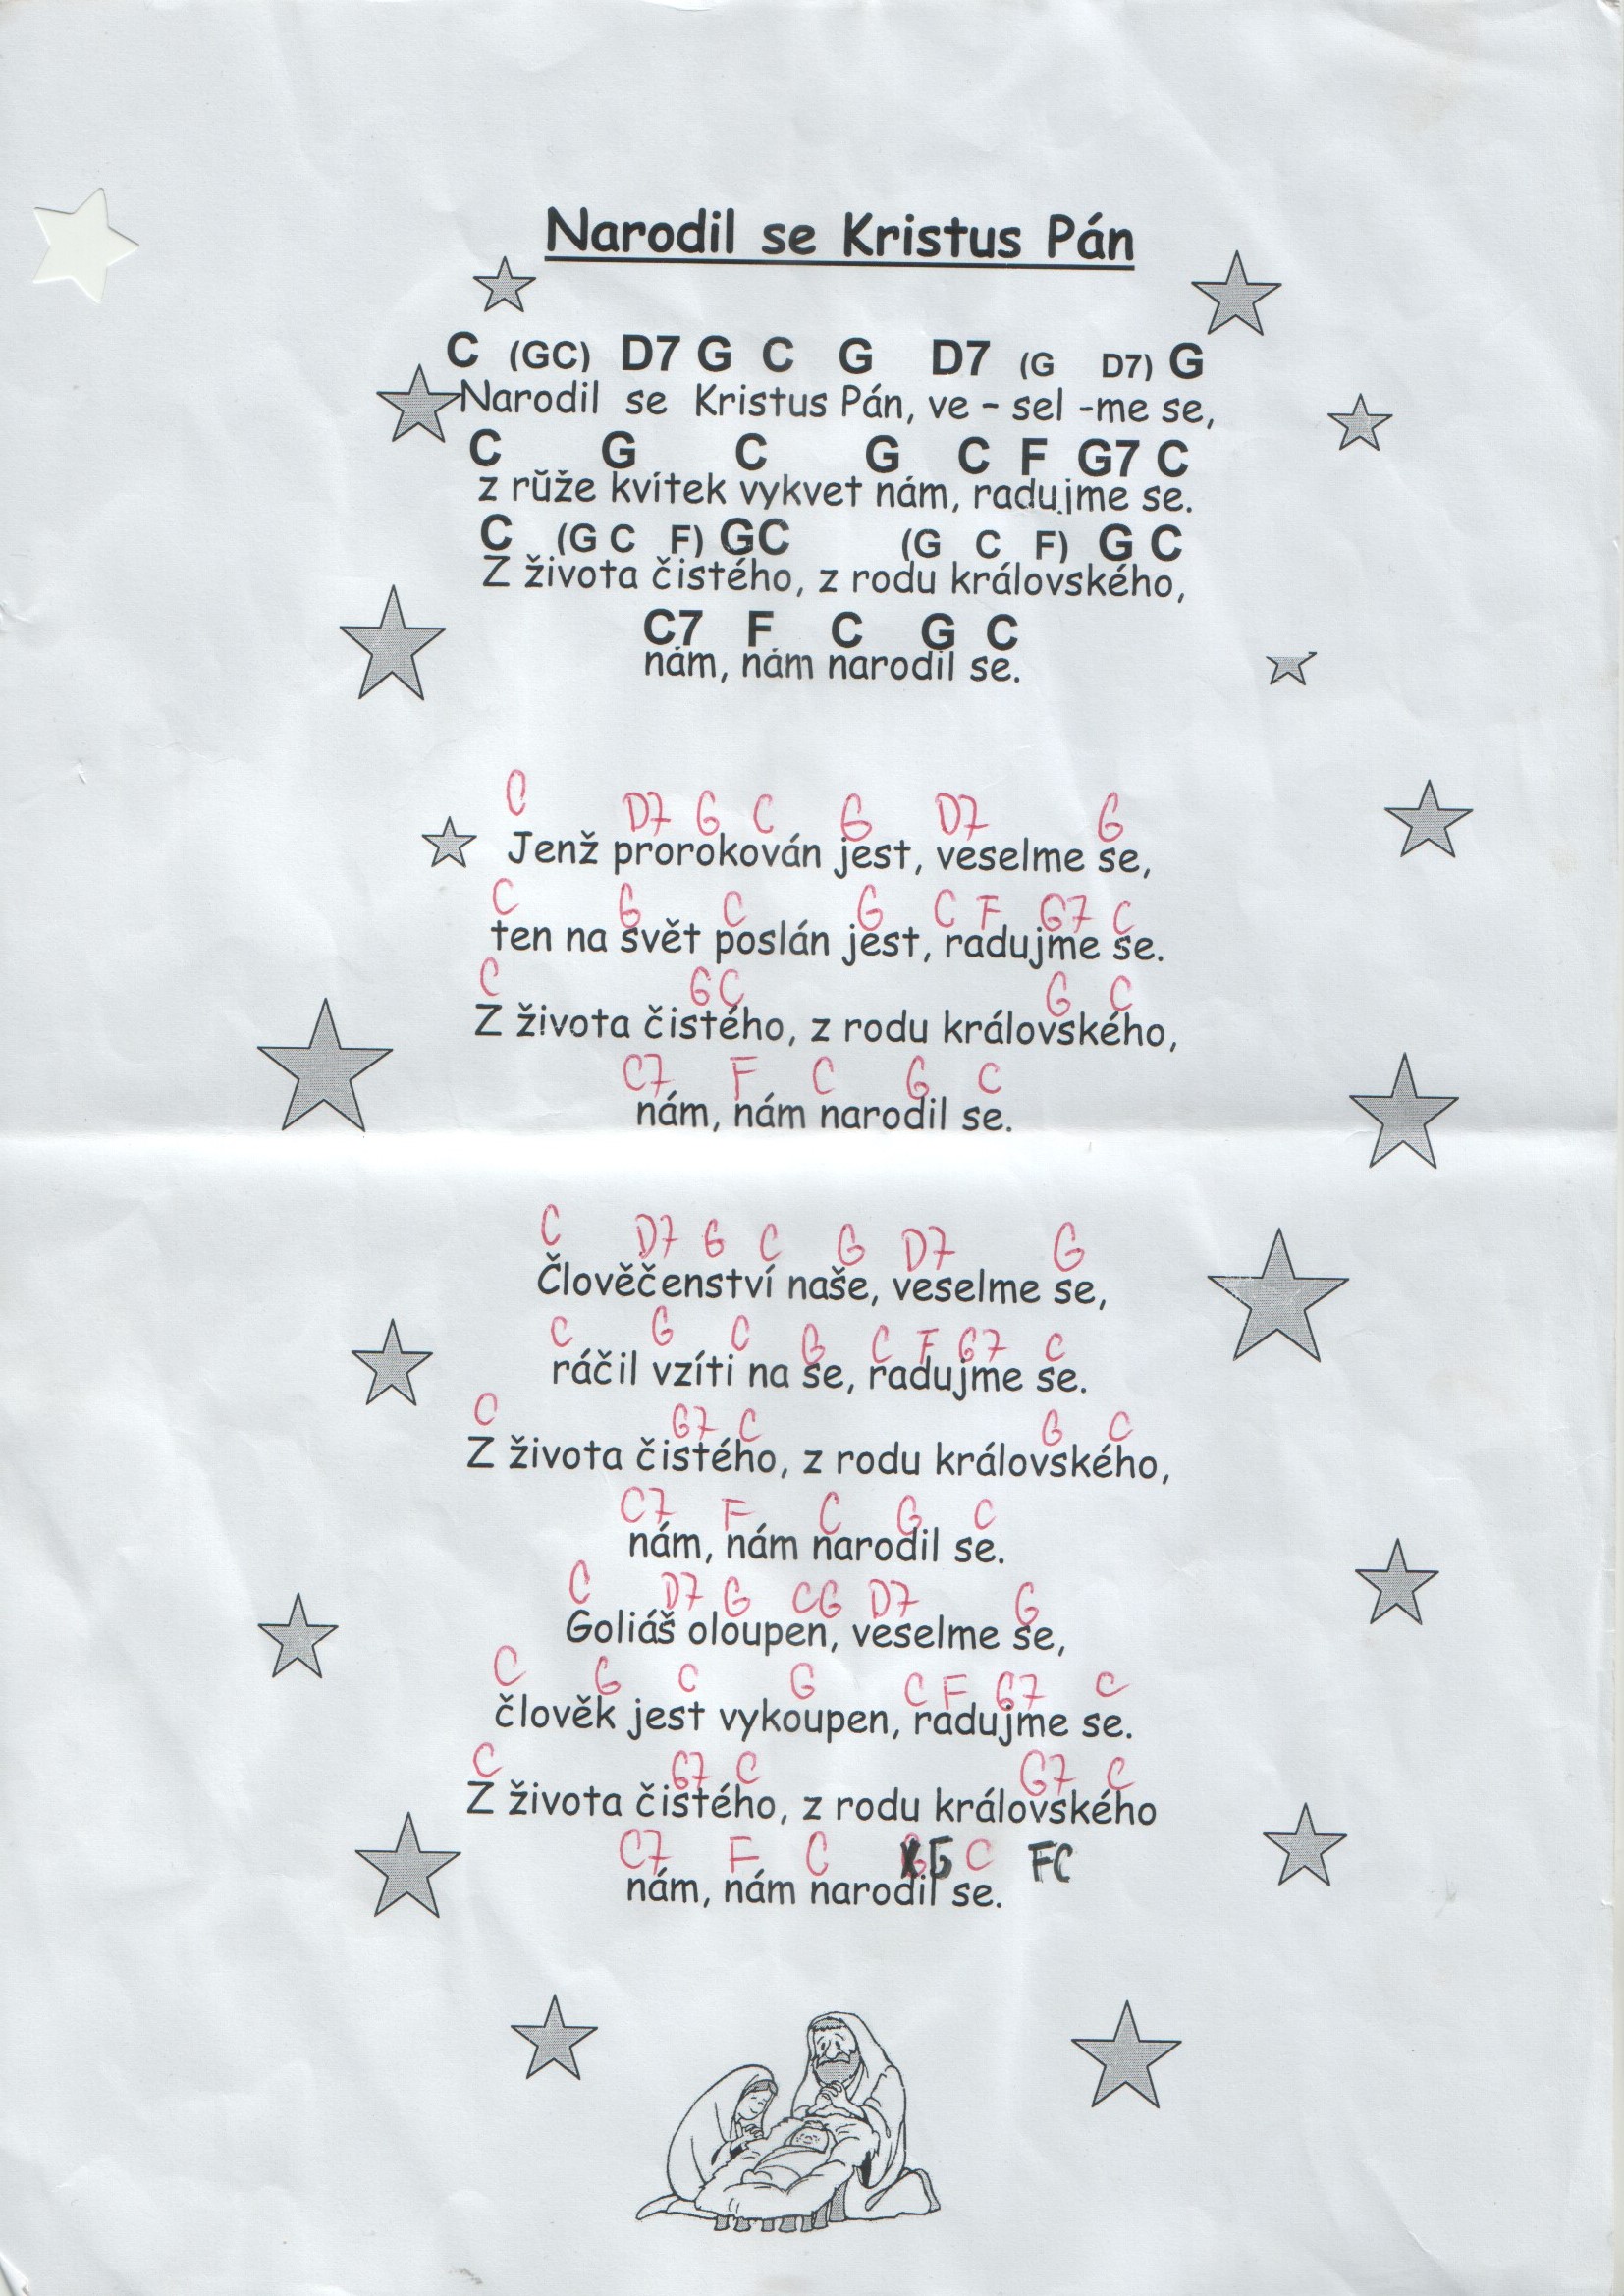 Narodil se Kristus Pán
C (GC) D7 G C G D7 (G D7) G
Narodil se Kristus Pán, ve - sel -me se,
C G C G C F G7 C
z růže kvítek vykvet nám, radujme se.
C (G C F) GC (G C F) G C
Z života čistého, z rodu královského,
C7 F C G C
nám, nám narodil se.
C D7 G C G D7 G
Jenž prorokován jest, veselme se,
C G C G C F G7 C
ten na svět poslán jest, radujme se.
C GC G C
Z života čistého, z rodu královského,
C7 F C G C
nám, nám narodil se.
C D7 G C G D7 G
Člověčenství naše, veselme se,
C G C G C F G7 C
ráčil vzíti na se, radujme se.
C G7 C G C
Z života čistého, z rodu královského,
C7 F C G C
nám, nám narodil se.
C D7 G CG D7 G
Goliáš oloupen, veselme se,
C G C G C F G7 C
člověk jest vykoupen, radujme se.
C G7 C G7 C
Z života čistého, z rodu královského
C7 F C G C FC
nám, nám narodil se.